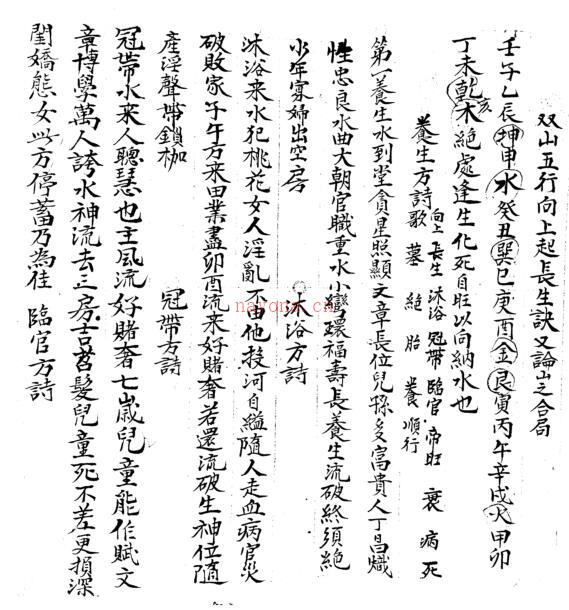 双山五行向上起長生訣又論山之合局
壬子乙辰坤申水癸丑巽巳庚酉金艮寅丙午辛戌火甲卯
丁未乾亥木絕處逢生化死自旺以向納水也
養生方詩歌
向上長生 沐浴 冠帶 臨官 帝旺 衰 病 死
墓 絕 胎 養 順行
第一養生水到堂貪星照顯文章長位兒孫多富貴人丁昌熾
性忠良水曲大朝官職重水小灣環福壽長養生流破終須絕
少年寡婦出空房 沐浴方詩
沐浴来水犯桃花女人淫亂不由他投河自縊隨人走血病官災
破敗家子午方来田業盡卯酉流来好賭奢若還流破生神位隨
產淫聲帶鎖枷 冠帶方詩
冠帶水来人聰慧也主風流好賭奢七歲兒童能作賦文
章博學萬人誇水神流去正房言苕髮兒童死不差更損深
閨嬌態女此方停蓄乃為佳 臨官方詩
nayona.cn